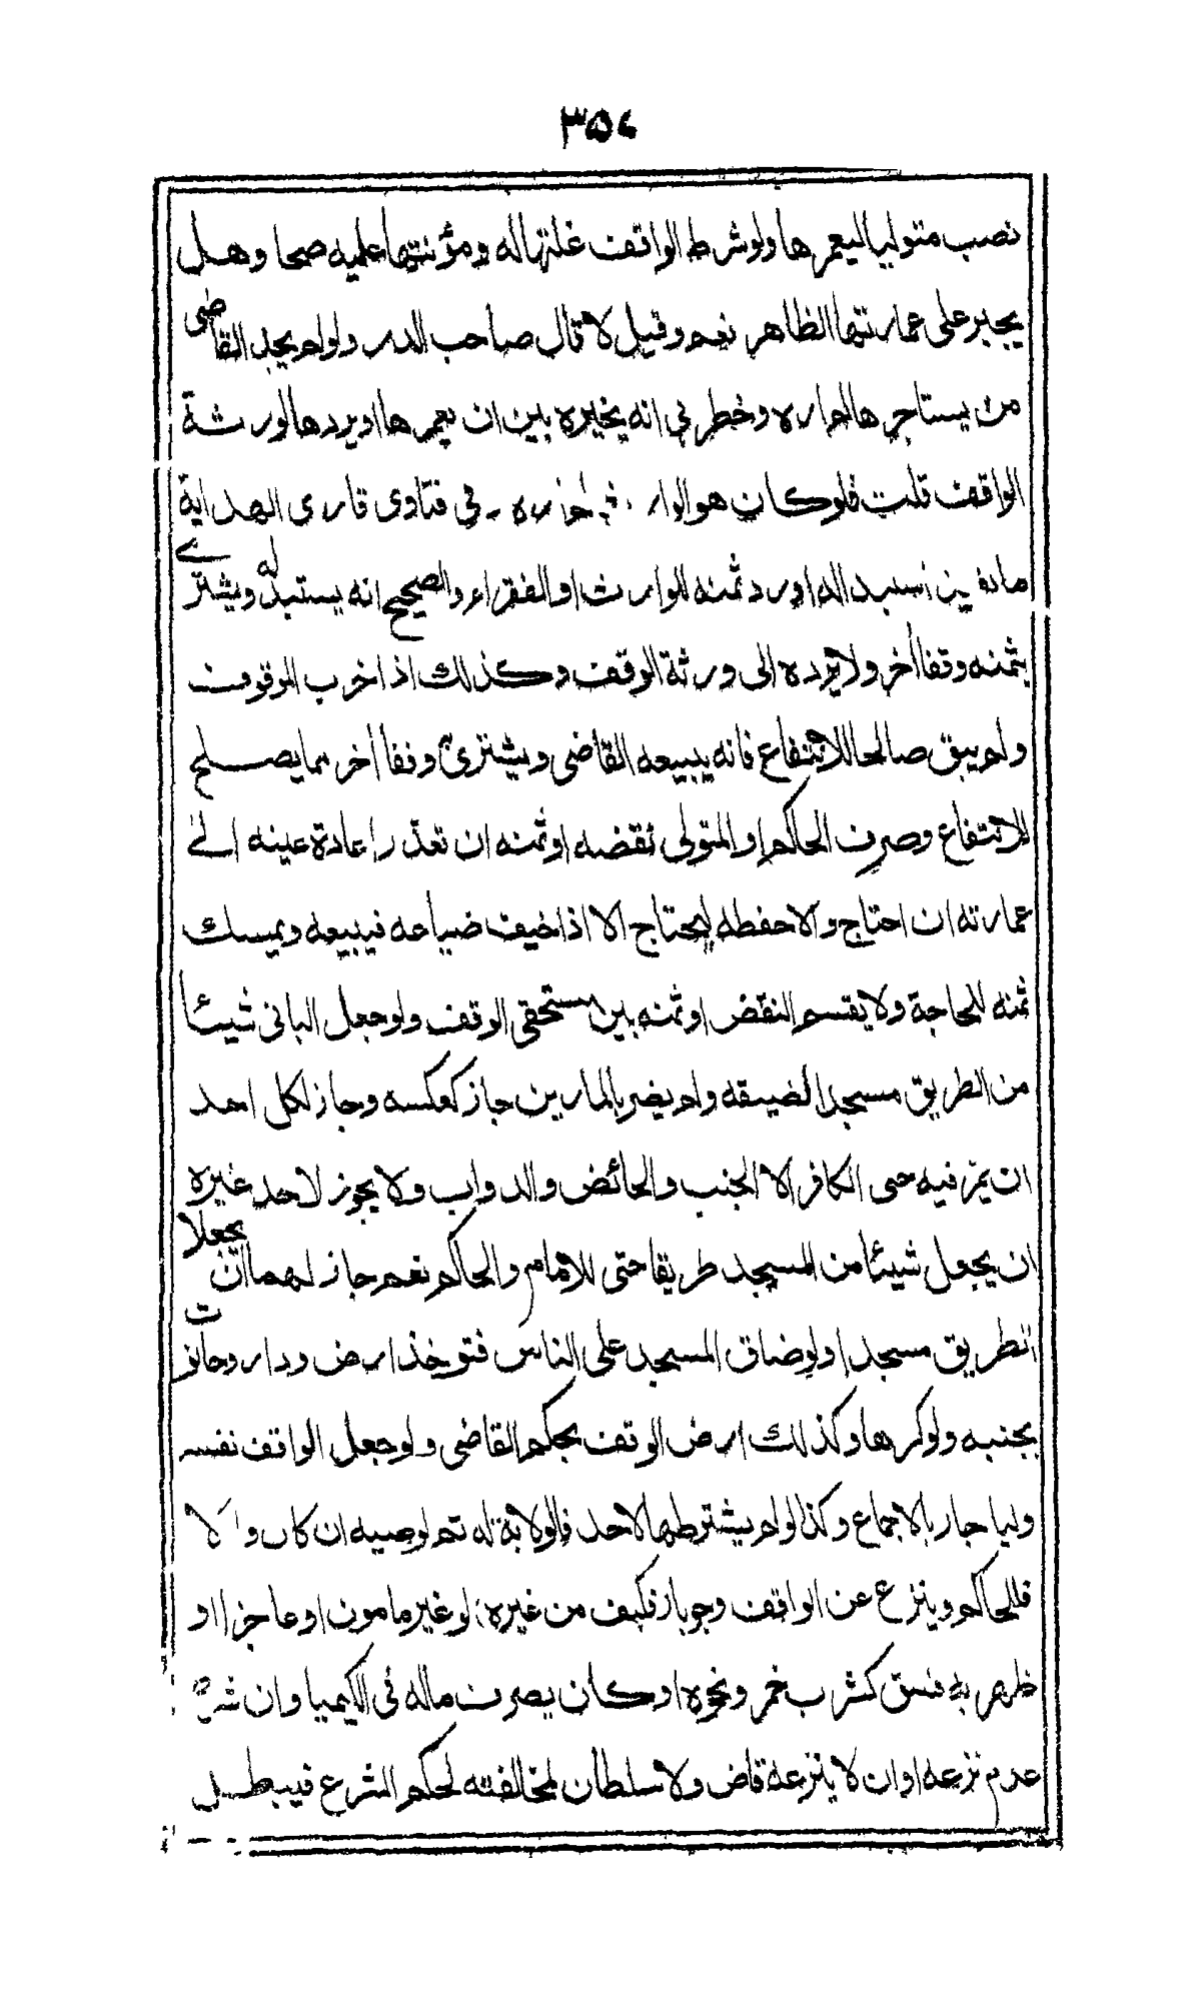 ٣٥٤
نصب متوليا ليعمرها ولو شرط الواقف غلتها له ومؤنتها عليه صحا وهل
يجبر على عمارتها الظاهر نعم وقيل لا قال صاحب الدرر ولو لم يجد القاضى
من يستاجرها لم اره وخطر لى انه يخيره بين ان يعمرها او يردها لورثة
الواقف قلت فلو كان هو الوار لم اره فى فتاوى قارى الهداية
ما استبدال او رد ثمنه للوارث او للفقراء والصحيح انه يستبدله ويشترے
بثمنه وقفا أخر ولا يرده الى ورثة الوقف وكذلك اذا خرب الموقوف
ولم يبق صالحا للانتفاع فانه يبيعه القاضى ويشترى وقفا أخر مما يصلح
للانتفاع وصرف الحاكم او المتولى نقضه او ثمنه ان تعذر اعادة عينه الى
عمارته ان احتاج والا حفظه ليحتاج الا اذا خيف ضياعه فيبيعه ويمسك
ثمنه للحاجة ولا يقسم النقض او ثمنه بين مستحقى الوقف ولو جعل البانى شيئا
من الطريق مسجدا لضيقه ولم يضر بالمارين جاز كعكسه وجاز لكل احد
ان يمر فيه حتى الكافر الا الجنب والحائض والدواب ولا يجوز لاحد غيره
ان يجعل شيئا من المسجد طريقا حتى للامام والحاكم نعم جاز لهما ان يجعلا
الطريق مسجدا ولو ضاق المسجد على الناس فتوخذ ارض ودار وحانوت
بجنبه ولو كرها وكذلك ارض الوقف بحكم القاضى ولو جعل الواقف نفسه
وليا جاز بالاجماع وكذا لو لم يشترطها لاحد فالولاية له ثم لوصيه ان كان والا
فللحاكم وينزع عن الواقف وجوبا فكيف من غيره لو غير مامون او عاجزا او
ظهر به فسق كشرب خمر ونحوه او كان يصرف ماله فى الكيميا وان شرط
عدم نزعه او ان لا ينزعه قاض ولا سلطان لمخالفته لحكم الشرع فيبطل